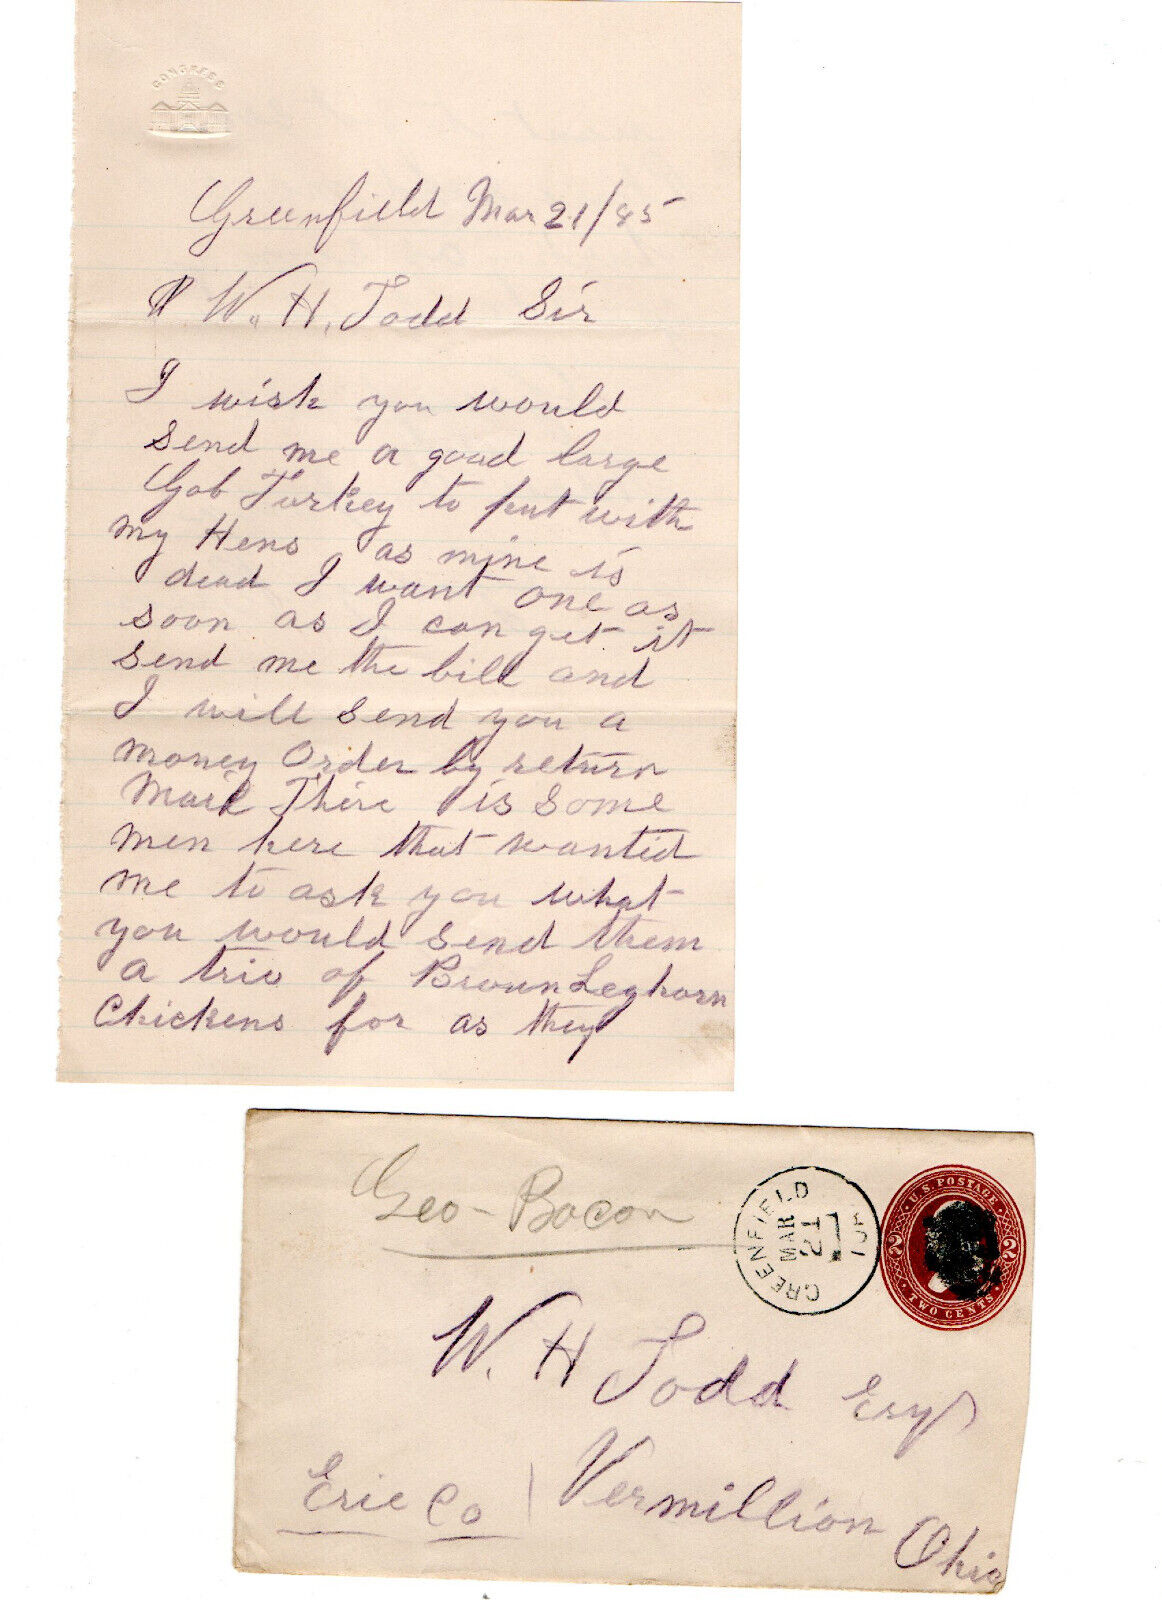 CONGRESS
Greenfield Mar 21/85
W. H. Todd Sir
I wish you would
send me a good large
Gob Turkey to put with
my Hens as mine is
dead I want one as
soon as I can get it
send me the bill and
I will send you a
money Order by return
Mail There is some
men here that wanted
me to ask you what
you would send them
a trio of Brown Leghorn
Chickens for as they
Geo - Bacon
GREENFIELD
MAR
21
IOA
U.S. POSTAGE
2 2
TWO CENTS
W. H Todd Esq
Vermillion
Erie Co
Ohio